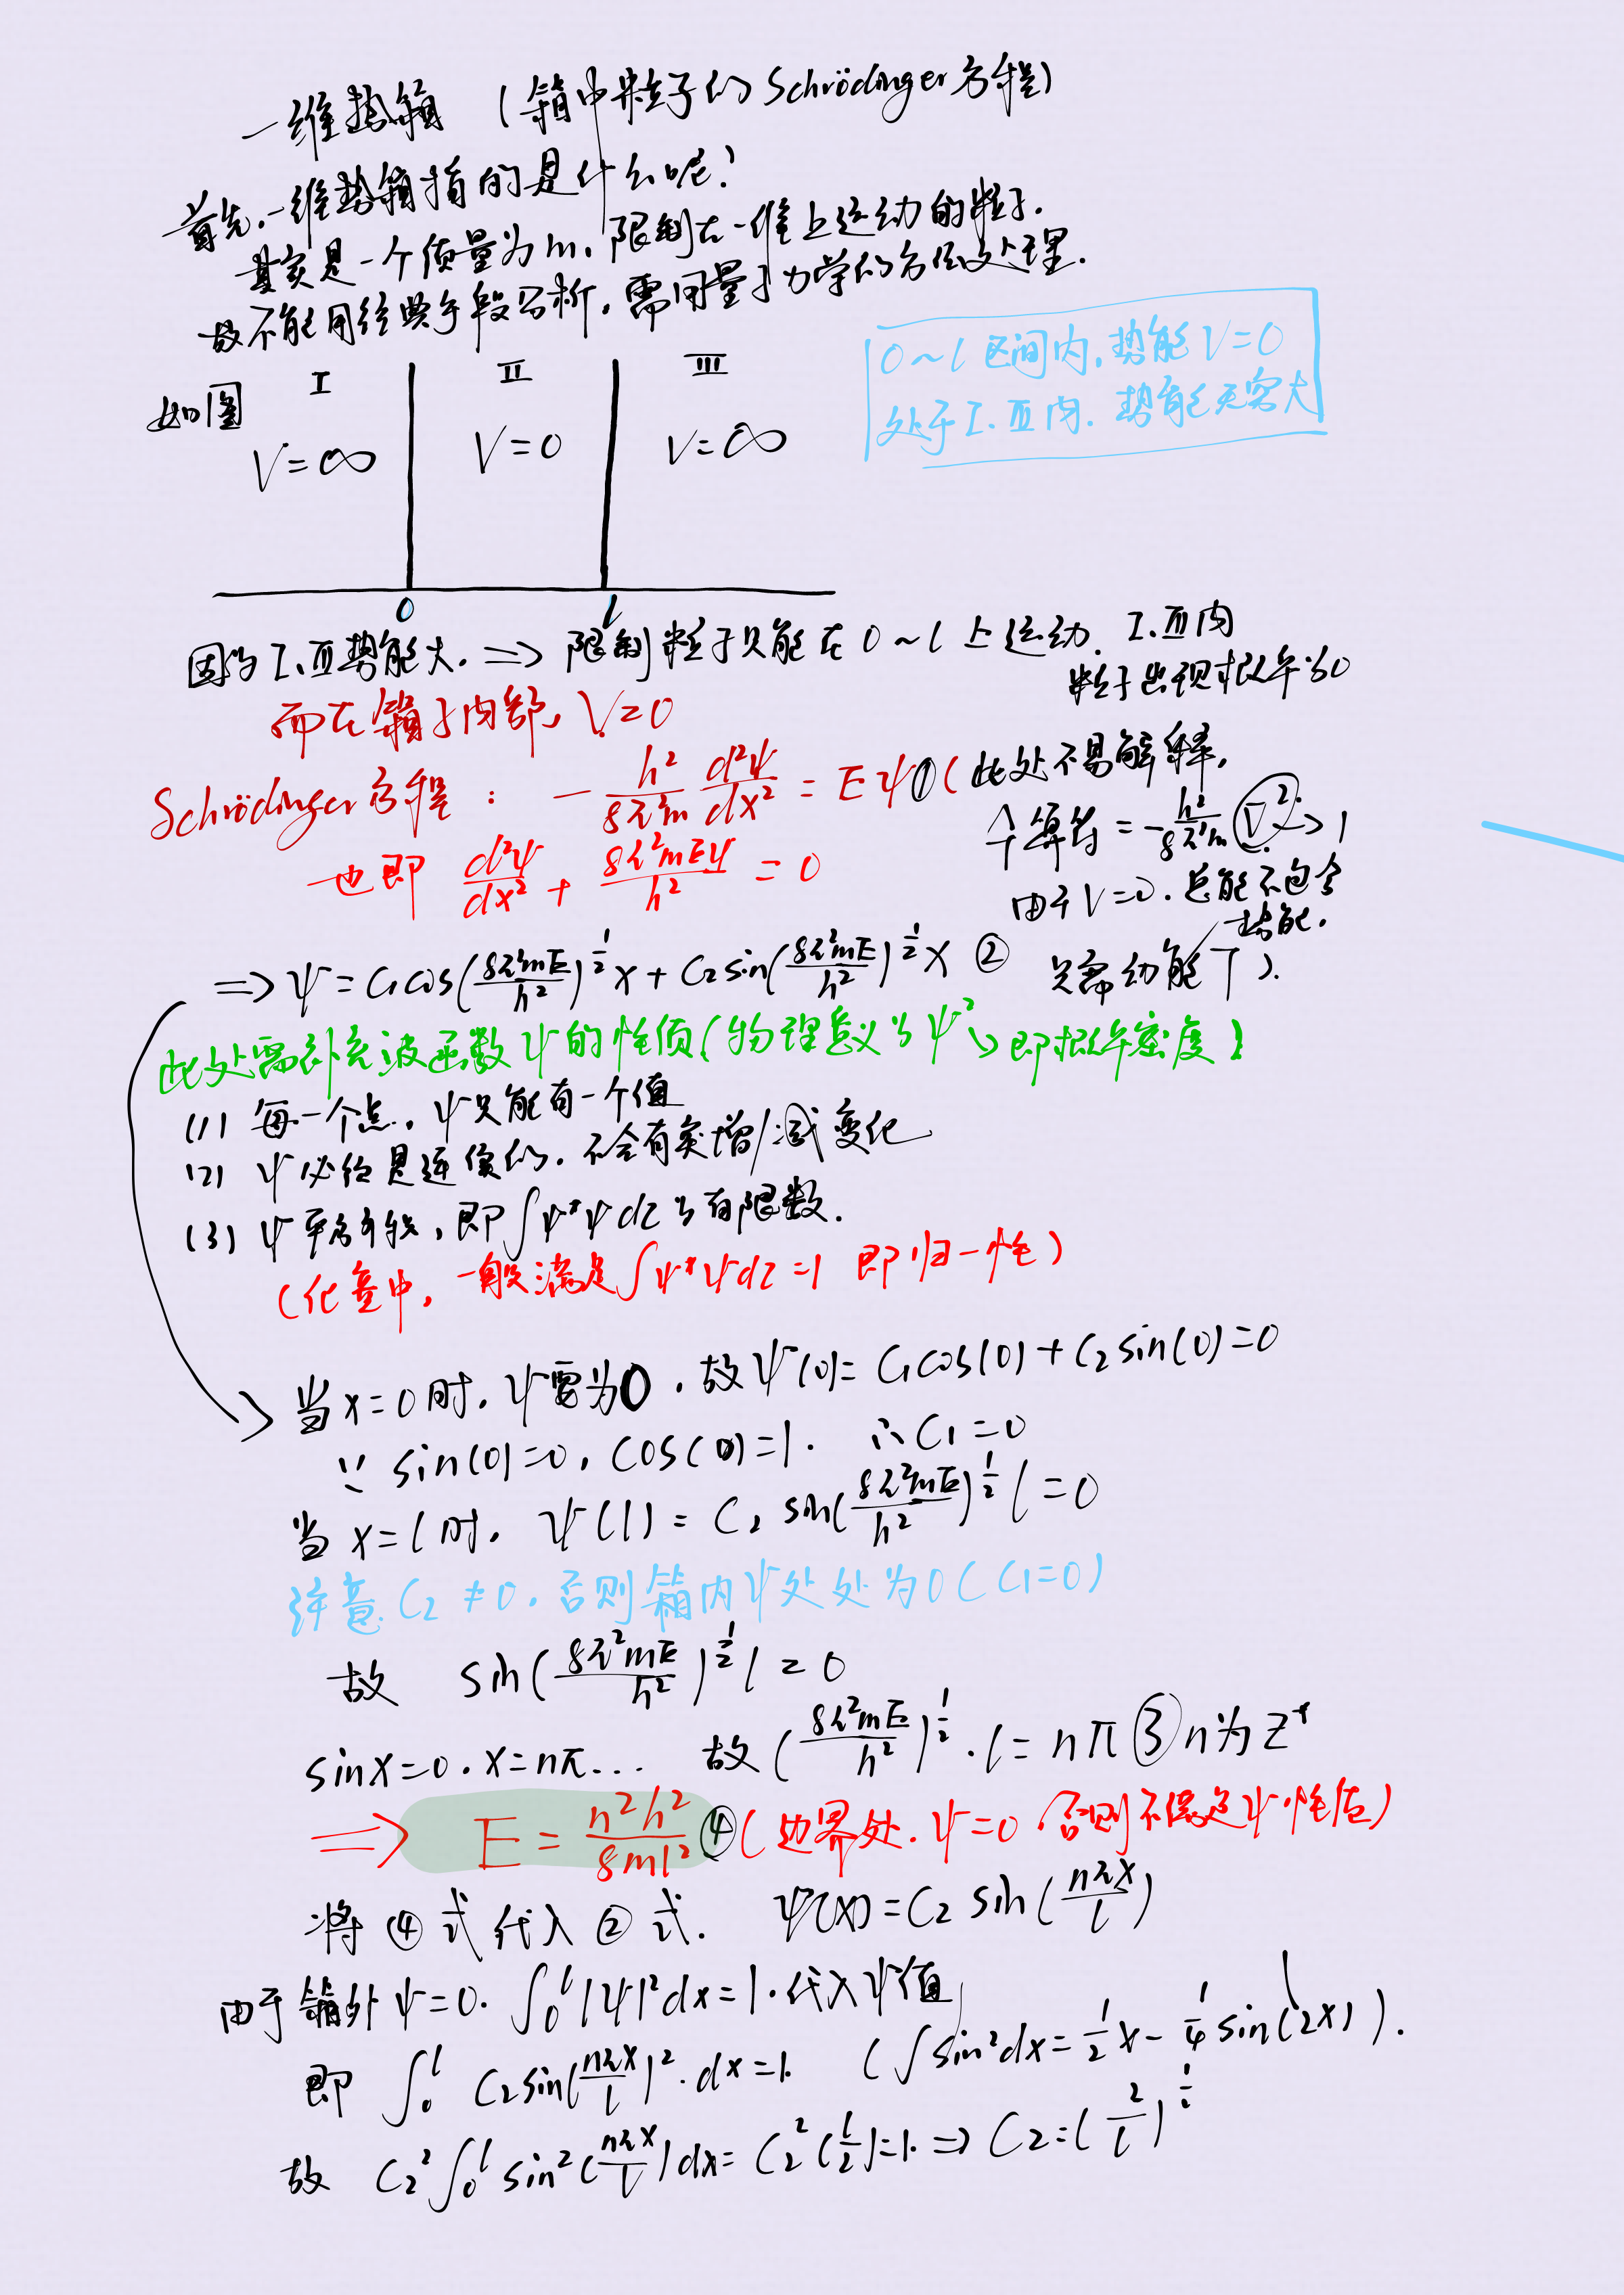 一维势箱 (箱中粒子的Schrödinger方程)
首先,一维势箱指的是什么呢?
其实是一个质量为m,限制在一维上运动的粒子.
故不能用经典手段分析,需用量子力学的方法处理.
如图
I II III
V=∞ V=0 V=∞
0 l
0~l 区间内,势能V=0
处于I.III内.势能无穷大
因为I.III势能大.⇒限制粒子只能在0~l上运动.I.III内
粒子出现概率为0
而在箱子内部,V=0
Schrödinger方程: -h²/8π²m d²ψ/dx² = Eψ ① (此处不易解释,
个算符=-h²/8π²m ∇² → 1
也即 d²ψ/dx² + 8π²mEψ/h² = 0
由于V=0.总能不包含
势能.
只需动能T).
⇒ψ=C₁cos(8π²mE/h²)^½x+C₂sin(8π²mE/h²)^½x ②
此处需补充波函数ψ的性质(物理意义为ψ²,即概率密度)
(1) 每一个点,ψ只能有一个值
(2) ψ必须是连续的.不会有突增/减变化
(3) ψ平方可积,即∫ψ*ψdτ为有限数.
(化学中,一般满足∫ψ*ψdτ=1 即归一性)
当x=0时,ψ需为0.故ψ(0)=C₁cos(0)+C₂sin(0)=0
∵ sin(0)=0, cos(0)=1. ∴C₁=0
当x=l时, ψ(l)=C₂ sin(8π²mE/h²)^½ l=0
注意.C₂≠0.否则箱内ψ处处为0(C₁=0)
故 sin(8π²mE/h²)^½ l=0
sinx=0.x=nπ... 故(8π²mE/h²)^½·l=nπ ③ n为Z⁺
⇒ E=n²h²/8ml² ④ (边界处.ψ=0.否则不满足ψ性质)
将④式代入②式. ψ(x)=C₂ sin(nπx/l)
由于箱外ψ=0. ∫₀ˡ|ψ|²dx=1.代入ψ值
即 ∫₀ˡ C₂sin(nπx/l)²·dx=1. (∫sin²dx=½x-¼sin(2x)).
故 C₂²∫₀ˡsin²(nπx/l)dx=C₂²(l/2)=1.⇒C₂=(2/l)^½